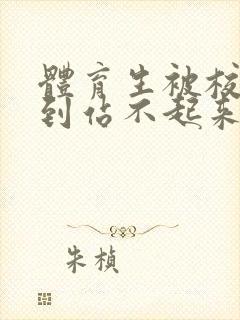 體育生被校
到佔不起来
朱楨